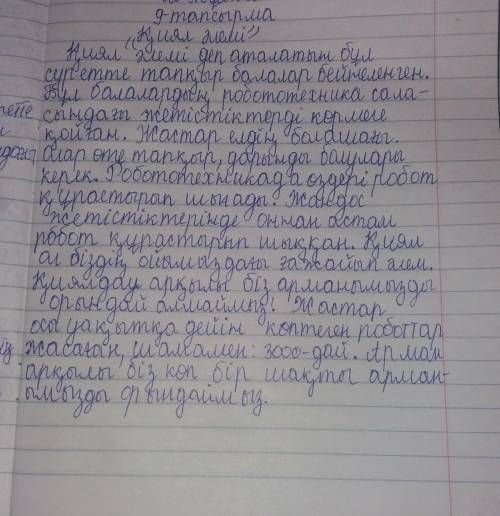 9-тапсырма
"Қиял әлемі"
Қиял әлемі деп аталатын бұл
суретте тапқыр балалар бейнеленген.
Бұл балалардың робототехника сала-
сындағы жетістіктерді көрмеге
қойған. Жастар елдің балашағы.
олар өте тапқыр, дарынды болулары
керек. Робототехникада өздері робот
құрастырып шығады. Жандос
жетістіктерінде оннан астам
робот құрастырып шыққан. Қиял
ол біздің ойымыздағы ғажайып әлем.
Қиялдау арқылы біз арманымызды
орындай алмаймыз! Жастар
осы уақытқа дейін көптеген роботтар
жасаған, шамамен: 3000-дай. Арман
арқылы біз көп бір шақты арман-
ымызды орындаймыз.